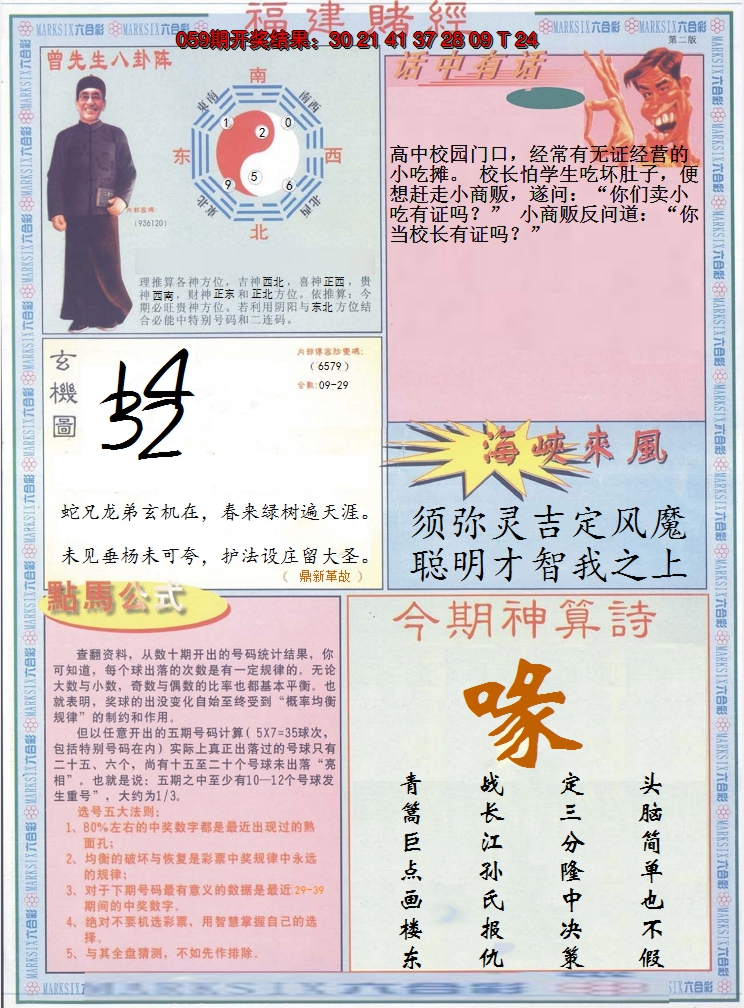 福建賭經
059期开奖结果：30 21 41 37 28 09 T 24
MARKSIX六合彩 MARKSIX六合彩
MARKSIX六合彩 MARKSIX六合彩
第二版
曾先生八卦阵
南
东南
西南
东
西
东北
西北
北
1
2
0
9
5
6
内部密碼:
(936120)
理推算各神方位，吉神西北，喜神正西，贵
神西南，财神正东和正北方位。依推算：今
期必旺贵神方位。若利用阴阳与东北方位结
合必能中特别号码和二连码。
话中有话
高中校园门口，经常有无证经营的
小吃摊。 校长怕学生吃坏肚子，便
想赶走小商贩，遂问：“你们卖小
吃有证吗？” 小商贩反问道：“你
当校长有证吗？”
玄機圖
内部傳密防變碼:
(6579)
合數:09-29
蛇兄龙弟玄机在，春来绿树遍天涯。
未见垂杨未可夸，护法设庄留大圣。
（ 鼎新革故 ）
海峽來風
须弥灵吉定风魔
聪明才智我之上
點馬公式
查翻资料，从数十期开出的号码统计结果，你
可知道，每个球出落的次数是有一定规律的。无论
大数与小数，奇数与偶数的比率也都基本平衡。也
就表明，奖球的出没变化自始至终受到“概率均衡
规律”的制约和作用。
但以任意开出的五期号码计算( 5X7=35球次，
包括特别号码在内) 实际上真正出落过的号球只有
二十五、六个，尚有十五至二十个号球未出落“亮
相”。也就是说：五期之中至少有10—12个号球发
生重号”，大约为1/3。
选号五大法则:
1、80%左右的中奖数字都是最近出现过的熟
面孔；
2、均衡的破坏与恢复是彩票中奖规律中永远
的规律；
3、对于下期号码最有意义的数据是最近29-39
期间的中奖数字。
4、绝对不要机选彩票，用智慧掌握自己的选
择。
5、与其全盘猜测，不如先作排除。
今期神算詩
喙
头脑简单也不假
定三分隆中决策
战长江孙氏报仇
青篙巨点画楼东